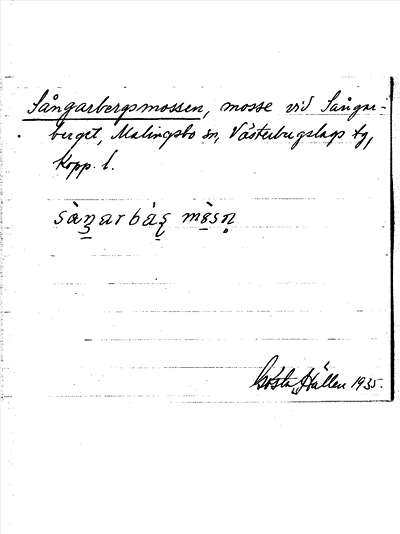 Sångarbergsmossen, mosse vid Sångar-
berget, Malingsbo sn, Västerbergslags tg,
Kopp. l.
sàŋarbáʂ mòsn̥
Gösta Hällen 1935.